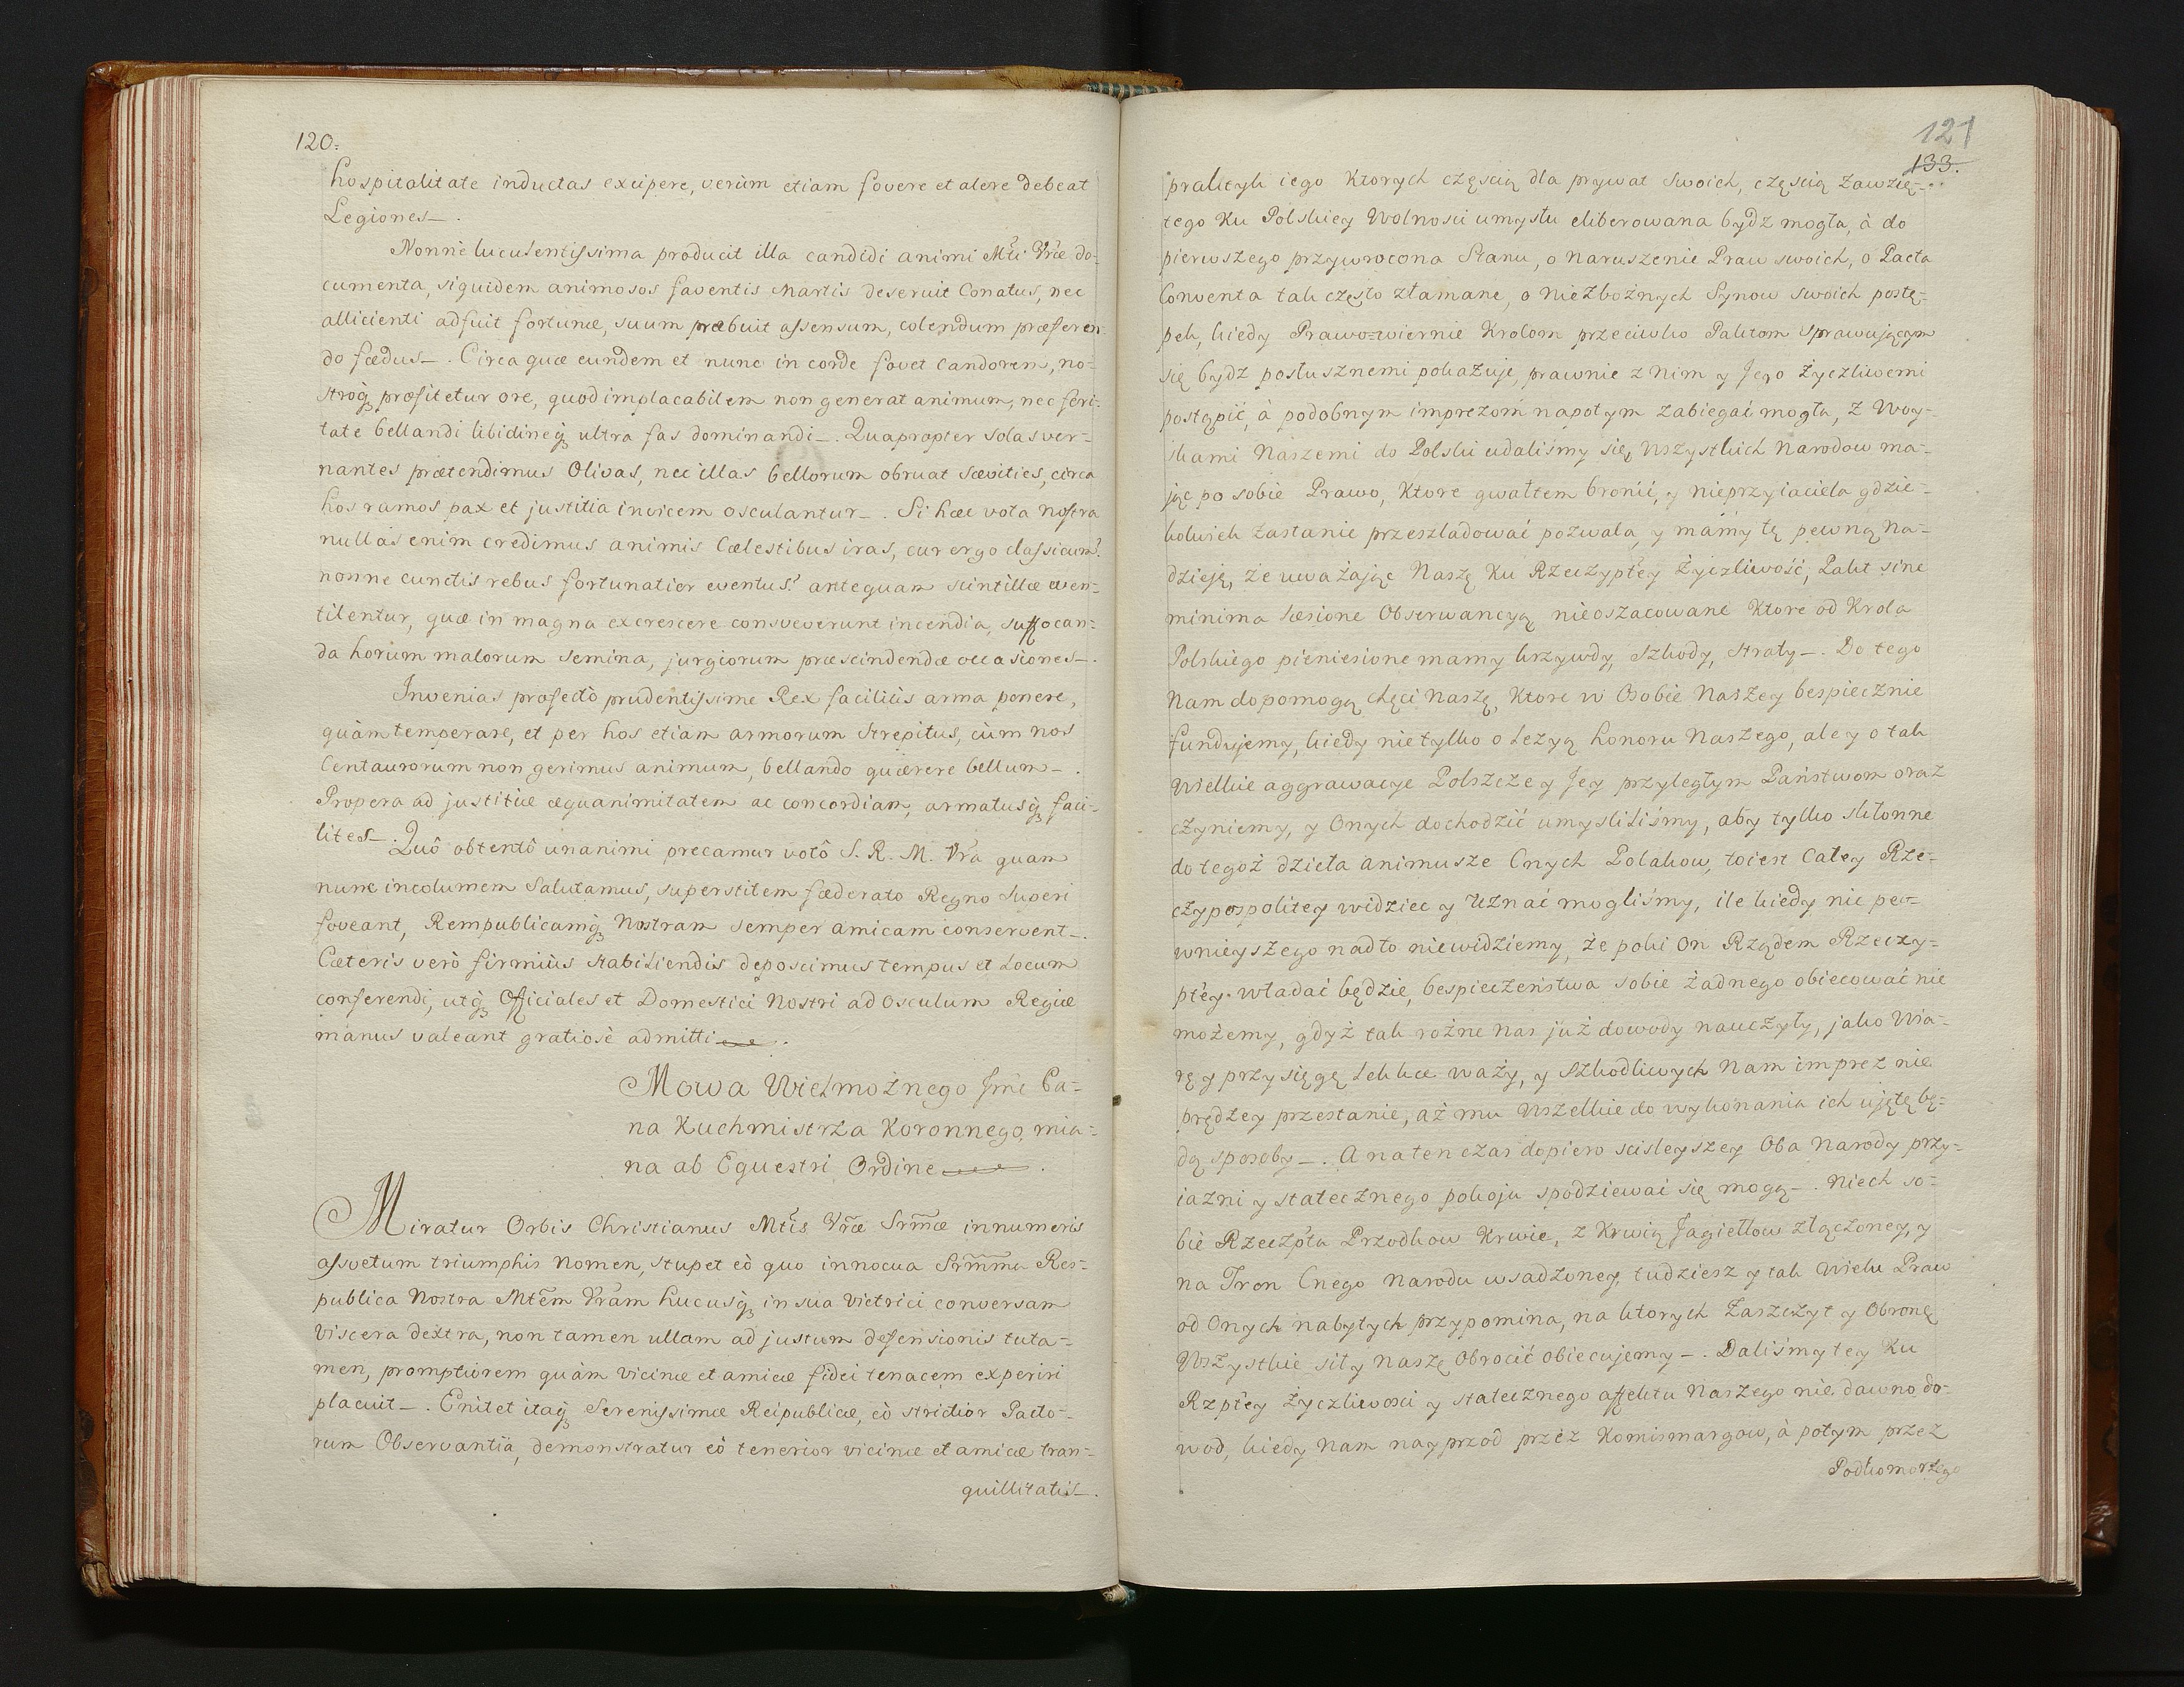 120.
hospitalitate inductas excipere, verùm etiam fovere et alere debeat
Legiones.
Nonnè luculentissima producit illa candidi animi Mtti Vræ do-
cumenta, siquidem animosos faventis Martis deseruit Conatus, nec
allicienti adfuit fortunæ, suum præbuit assensum, colendum præferen-
do fædus. Circa quæ eundem et nunc in corde fovet Candorem, no-
stroq₃ profitetur ore, quod implacabilem non generat animum, nec feri-
tate bellandi libidineq₃ ultra fas dominandi. Quapropter solas ver-
nantes prætendimus Olivas, nec illas bellorum obruat sævities, circa
hos ramos pax et justitia invicem osculantur. Si hæc vota nostra
nullas enim credimus animis Cælestibus iras, cur ergo classicum?
nonne cunctis rebus fortunatior eventus? antequam scintillæ even-
tilentur, quæ in magna excrescere consveverunt incendia, suffocan-
da horum malorum semina, jurgiorum præscindendæ occasiones.
Invenias profectò prudentissime Rex faciliùs arma ponere,
quàm temperare, et per hos etiam armorum strepitus, cùm nos
Centaurorum non gerimus animum, bellando quærere bellum.
Propera ad justitiæ æquanimitatem ac concordiam, armatusq₃ faci-
lites.
Quô obtentô unanimi precamur votô S. R. M. Vrã quam
nunc incolumem Salutamus, superstitem fæderato Regno Superi
foveant, Rempublicamq₃ Nostram semper amicam conservent.
Cæteris verò firmiùs stabiliendis deposcimus tempus et Locum
conferendi, utq₃ Officiales et Domestici Nostri ad osculum Regiæ
manus valeant gratiosè admitti.
Mowa Wielmożnego Jmći Pa-
na Kuchmistrza Koronnego, mia-
na ab Equestri Ordine.
Miratur Orbis Christianus Mttis Vræ Srmæ innumeris
assvetum triumphis Nomen, stupet eò quo innocua Srma Res-
publica Nostra Mttem Vram hucusq₃ in sua victrici conversam
viscera dextra, non tamen ullam ad justum defensionis tuta-
men, promptiorem quàm vicinæ et amicæ fidei tenacem experiri
placuit. Enitet itaq₃ Serenissimæ Reipublicæ, eò strictior Pacto-
rum Observantia, demonstratur eò tenerior vicinæ et amicæ tran-
quillitatis.
121
133.
praktyk iego ktorych częscią dla prywat swoich, częscią zawzię-
tego Ku Polskiey Wolnosci umysłu eliberowana bydz mogła, à do
pierwszego przywrocona Stanu, o naruszenie Praw swoich, o Pacta
Conventa tak często złamane, o Niezbożnych Synow swoich postę-
pek, kiedy Prawo-wiernie Krolom przeciwko Paktom sprawującym
się bydz posłusznemi pokazuje, prawnie z Nim y Jego życzliwemi
postąpić, à podobnym imprezom napotym zabiegać mogła, z Woy-
skami Naszemi do Polski udalismy się, wszystkich Narodow ma-
jąc po sobie Prawo, ktore gwałtem bronić, y nieprzyiaciela gdzie-
kolwiek zastanie przeszladować pozwala, y mamy tę pewną na-
dzieję, że uważając Naszę Ku Rzeczypłey życzliwość, Pakt sine
minima læsione Obserwancyą nieoszacowane Ktore od Krola
Polskiego pieniesione mamy krzywdy, szkody, straty. Do tego
Nam dopomogą chęci Naszę, ktore w Osobie Naszey bespiecznie
fundujemy, kiedy nie tylko o Lezyą honoru Naszego, ale y o tak
wielkie aggrawacye Polszcze y Jey przyległym Państwom oraz
czyniemy, y Onych dochodzić umyslilismy, aby tylko skłonne
do tegoż dzieła animusze Cnych Polakow, toiest Całey Rze-
czypospolitey widziec y uznać moglismy, ile kiedy nic pe-
wnieyszego nadto niewidziemy, że poki On Rządem Rzeczy-
płey władać będzie, bespieczeństwa sobie żadnego obiecować nie
możemy, gdyż tak rożne nas już dowody nauczyły, jako Wia-
rę y przysięgę lekce waży, y szkodliwych Nam imprez nie
prędzey przestanie, aż mu wszelkie do wykonania ich ujętę bę-
dą sposoby. A na ten czas dopiero scisleyszey Oba Narody przy-
iazni y statecznego pokoju spodziewać się mogą. Niech so-
bie Rzeczpta Przodkow Krwie, z Krwią Jagiełłow złączoney, y
na Tron Cnego Narodu wsadzoney, tudziesz y tak wielu Praw
od Onych nabytych przypomina, na ktorych Zaszczyt y Obronę
Wszystkie siły naszę Obrocić obiecujemy. Dalismy tey Ku
Rzptey życzliwosci y statecznego affektu Naszego nie dawno do-
wod, kiedy Nam nayprzod przez Komismargow, à potym przez
Podkomorzego